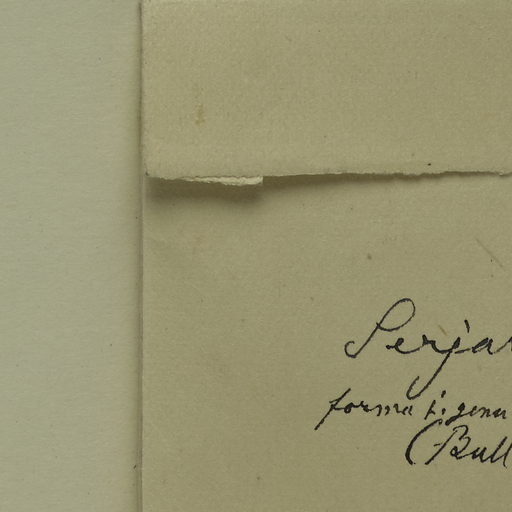 Serjan
forma I. genu
(Bull